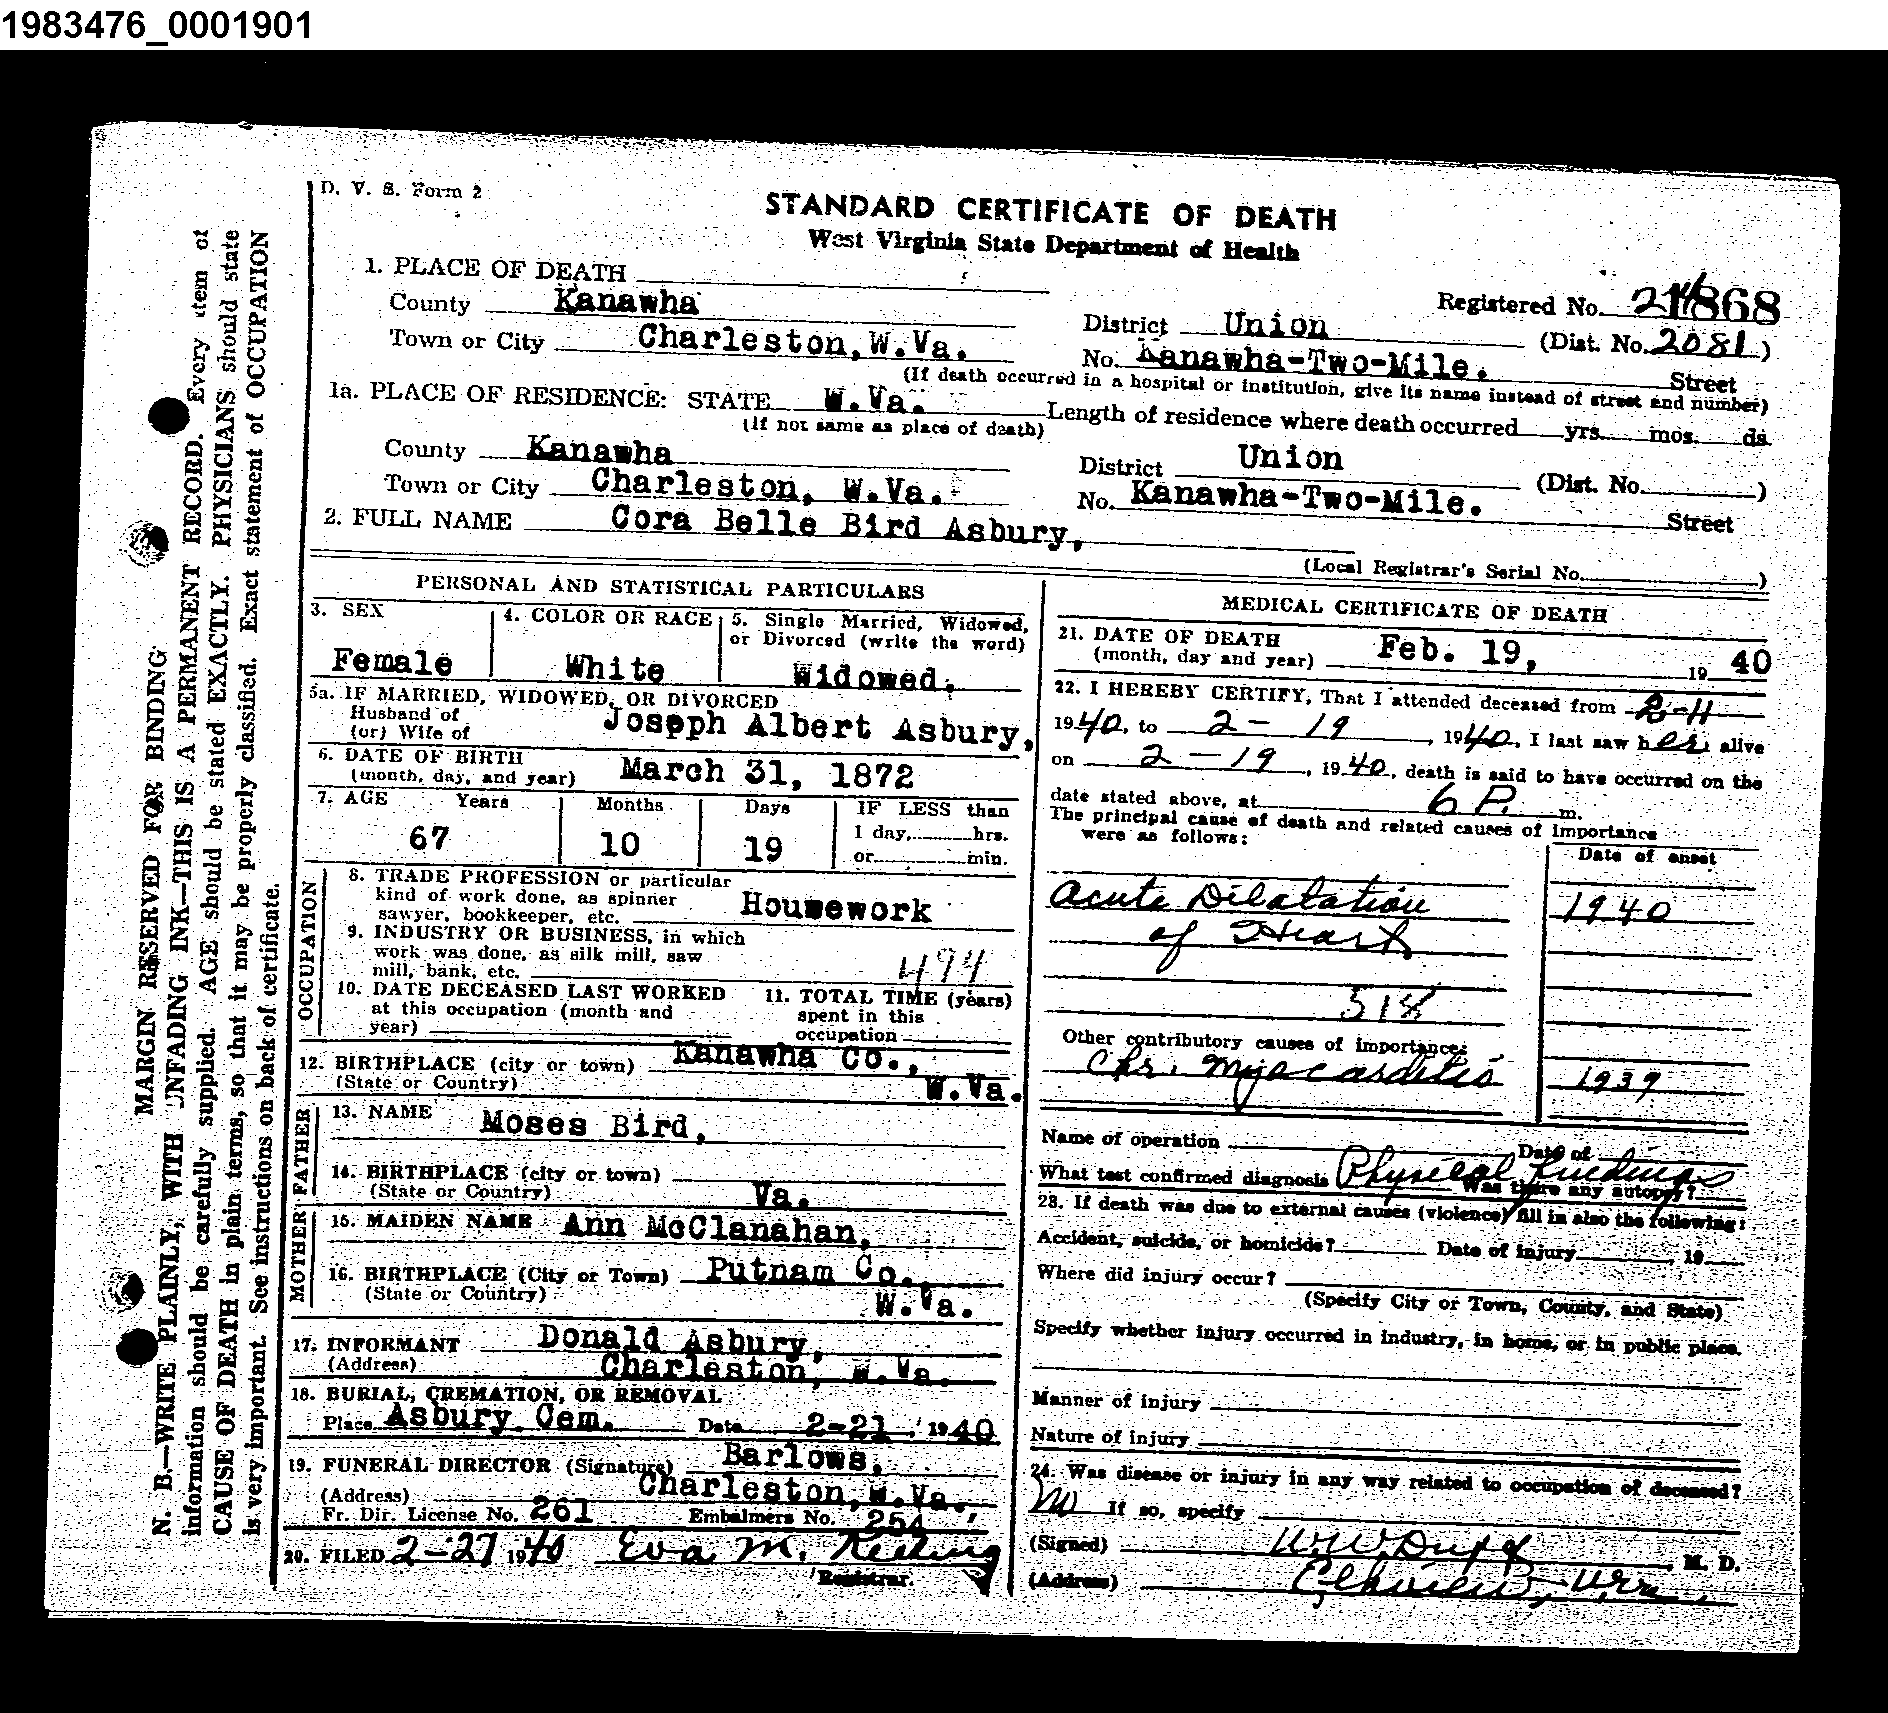 1983476_0001901
D. V. S. Form 2
STANDARD CERTIFICATE OF DEATH
West Virginia State Department of Health
1. PLACE OF DEATH
County Kanawha
Registered No.
District Union (Dist. No. 2081)
Town or City Charleston, W.Va.
No. Kanawha-Two-Mile. Street
(If death occurred in a hospital or institution, give its name instead of street and number)
1a. PLACE OF RESIDENCE: STATE W.Va. Length of residence where death occurred yrs. mos. ds.
(If not same as place of death)
County Kanawha District Union (Dist. No. )
Town or City Charleston, W.Va. No. Kanawha-Two-Mile. Street
2. FULL NAME Cora Belle Bird Asbury,
(Local Registrar's Serial No. )
PERSONAL AND STATISTICAL PARTICULARS
3. SEX Female
4. COLOR OR RACE White
5. Single Married, Widowed,
or Divorced (write the word)
Widowed.
5a. IF MARRIED, WIDOWED, OR DIVORCED
Husband of
(or) Wife of Joseph Albert Asbury,
6. DATE OF BIRTH
(month, day, and year) March 31, 1872
7. AGE Years 67 Months 10 Days 19
IF LESS than
1 day, hrs.
or min.
OCCUPATION
8. TRADE PROFESSION or particular
kind of work done, as spinner
sawyer, bookkeeper, etc. Housework
9. INDUSTRY OR BUSINESS, in which
work was done, as silk mill, saw
mill, bank, etc.
494
10. DATE DECEASED LAST WORKED
at this occupation (month and
year)
11. TOTAL TIME (years)
spent in this
occupation
12. BIRTHPLACE (city or town) Kanawha Co.,
(State or Country) W.Va.
FATHER
13. NAME Moses Bird,
14. BIRTHPLACE (city or town)
(State or Country) Va.
MOTHER
15. MAIDEN NAME Ann McClanahan,
16. BIRTHPLACE (City or Town) Putnam Co.
(State or Country) W.Va.
17. INFORMANT Donald Asbury,
(Address) Charleston, W.Va.
18. BURIAL, CREMATION, OR REMOVAL
Place Asbury Cem. Date 2-21, 1940
19. FUNERAL DIRECTOR (Signature) Barlows,
(Address) Charleston, W.Va.,
Fr. Dir. License No. 261 Embalmers No. 254
20. FILED 2-27 1940 Eva M. Keeling
Registrar.
MEDICAL CERTIFICATE OF DEATH
21. DATE OF DEATH
(month, day and year) Feb. 19, 19 40
22. I HEREBY CERTIFY, That I attended deceased from 2-11
1940, to 2-19, 1940, I last saw her alive
on 2-19, 1940, death is said to have occurred on the
date stated above, at 6 P. m.
The principal cause of death and related causes of importance
were as follows:
Date of onset
Acute Dilatation 1940
of Heart
Other contributory causes of importance:
Chr. Myocarditis 1939
Name of operation Date of
What test confirmed diagnosis Physical findings Was there any autopsy?
23. If death was due to external causes (violence) fill in also the following:
Accident, suicide, or homicide? Date of injury , 19
Where did injury occur?
(Specify City or Town, County, and State)
Specify whether injury occurred in industry, in home, or in public place.
Manner of injury
Nature of injury
24. Was disease or injury in any way related to occupation of deceased?
No If so, specify
(Signed) M. D.
(Address) Elkview, W.Va.
MARGIN RESERVED FOR BINDING
N. B.—WRITE PLAINLY, WITH UNFADING INK—THIS IS A PERMANENT RECORD. Every item of
information should be carefully supplied. AGE should be stated EXACTLY. PHYSICIANS should state
CAUSE OF DEATH in plain terms, so that it may be properly classified. Exact statement of OCCUPATION
is very important. See instructions on back of certificate.